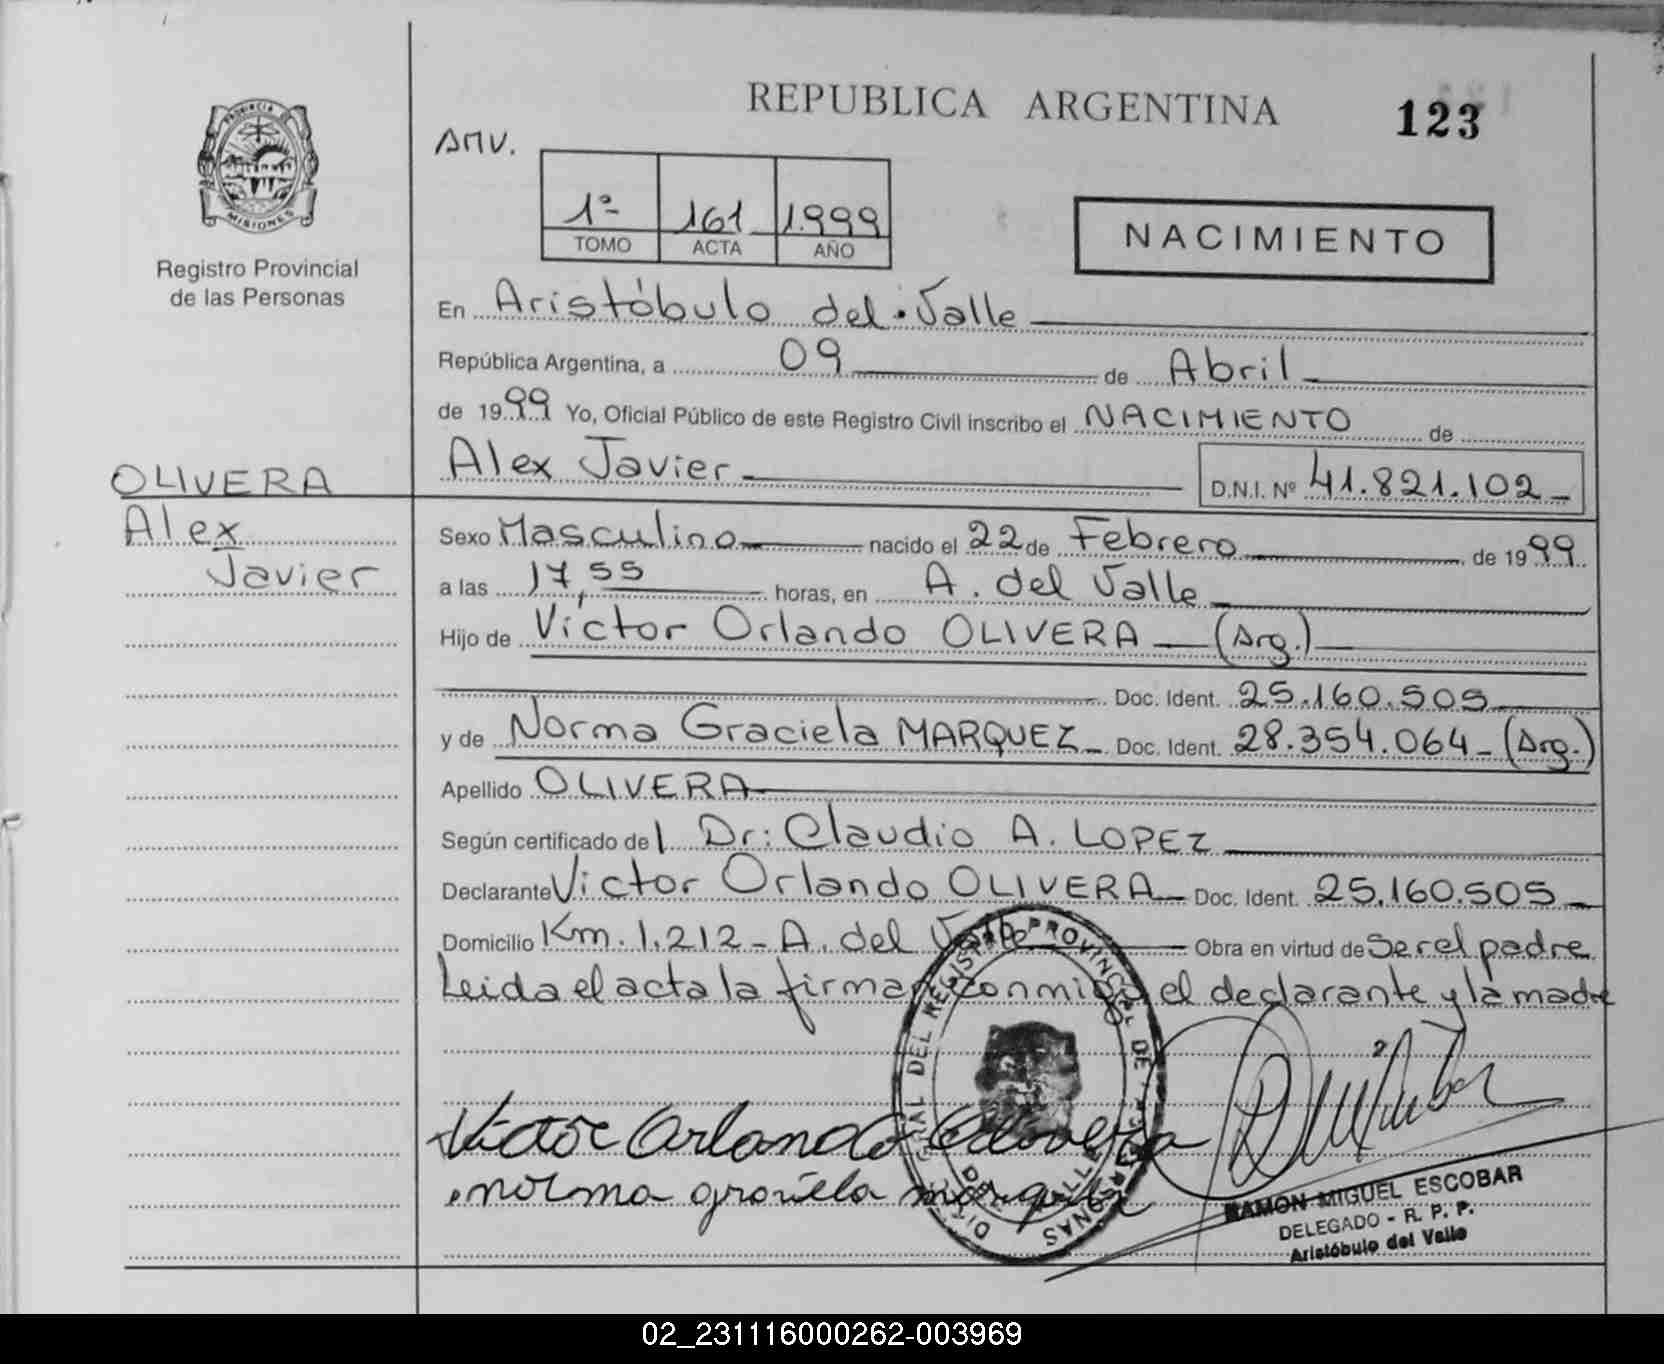 REPUBLICA ARGENTINA
123
AMV.
PROVINCIA DE
MISIONES
Registro Provincial
de las Personas
1º 161 1.999
TOMO ACTA AÑO
NACIMIENTO
En Aristóbulo del Valle
República Argentina, a 09 de Abril
de 1999 Yo, Oficial Público de este Registro Civil inscribo el NACIMIENTO de
Alex Javier D.N.I. Nº 41.821.102
OLIVERA
Alex
Javier
Sexo Masculino nacido el 22 de Febrero de 1999
a las 17,55 horas, en A. del Valle
Hijo de Víctor Orlando OLIVERA (Arg.)
Doc. Ident. 25.160.505
y de Norma Graciela MARQUEZ Doc. Ident. 28.354.064 (Arg.)
Apellido OLIVERA
Según certificado del Dr: Claudio A. LOPEZ
Declarante Victor Orlando OLIVERA Doc. Ident. 25.160.505
Domicilio Km. 1.212 - A. del Valle Obra en virtud de Ser el padre
Leida el acta la firman conmigo el declarante y la madre
DEL REGISTRO PROVINCIAL DE LAS PERSONAS
Victor Orlando Olivera
norma graciela marquez
RAMON MIGUEL ESCOBAR
DELEGADO - R. P. P.
Aristóbulo del Valle
02_231116000262-003969